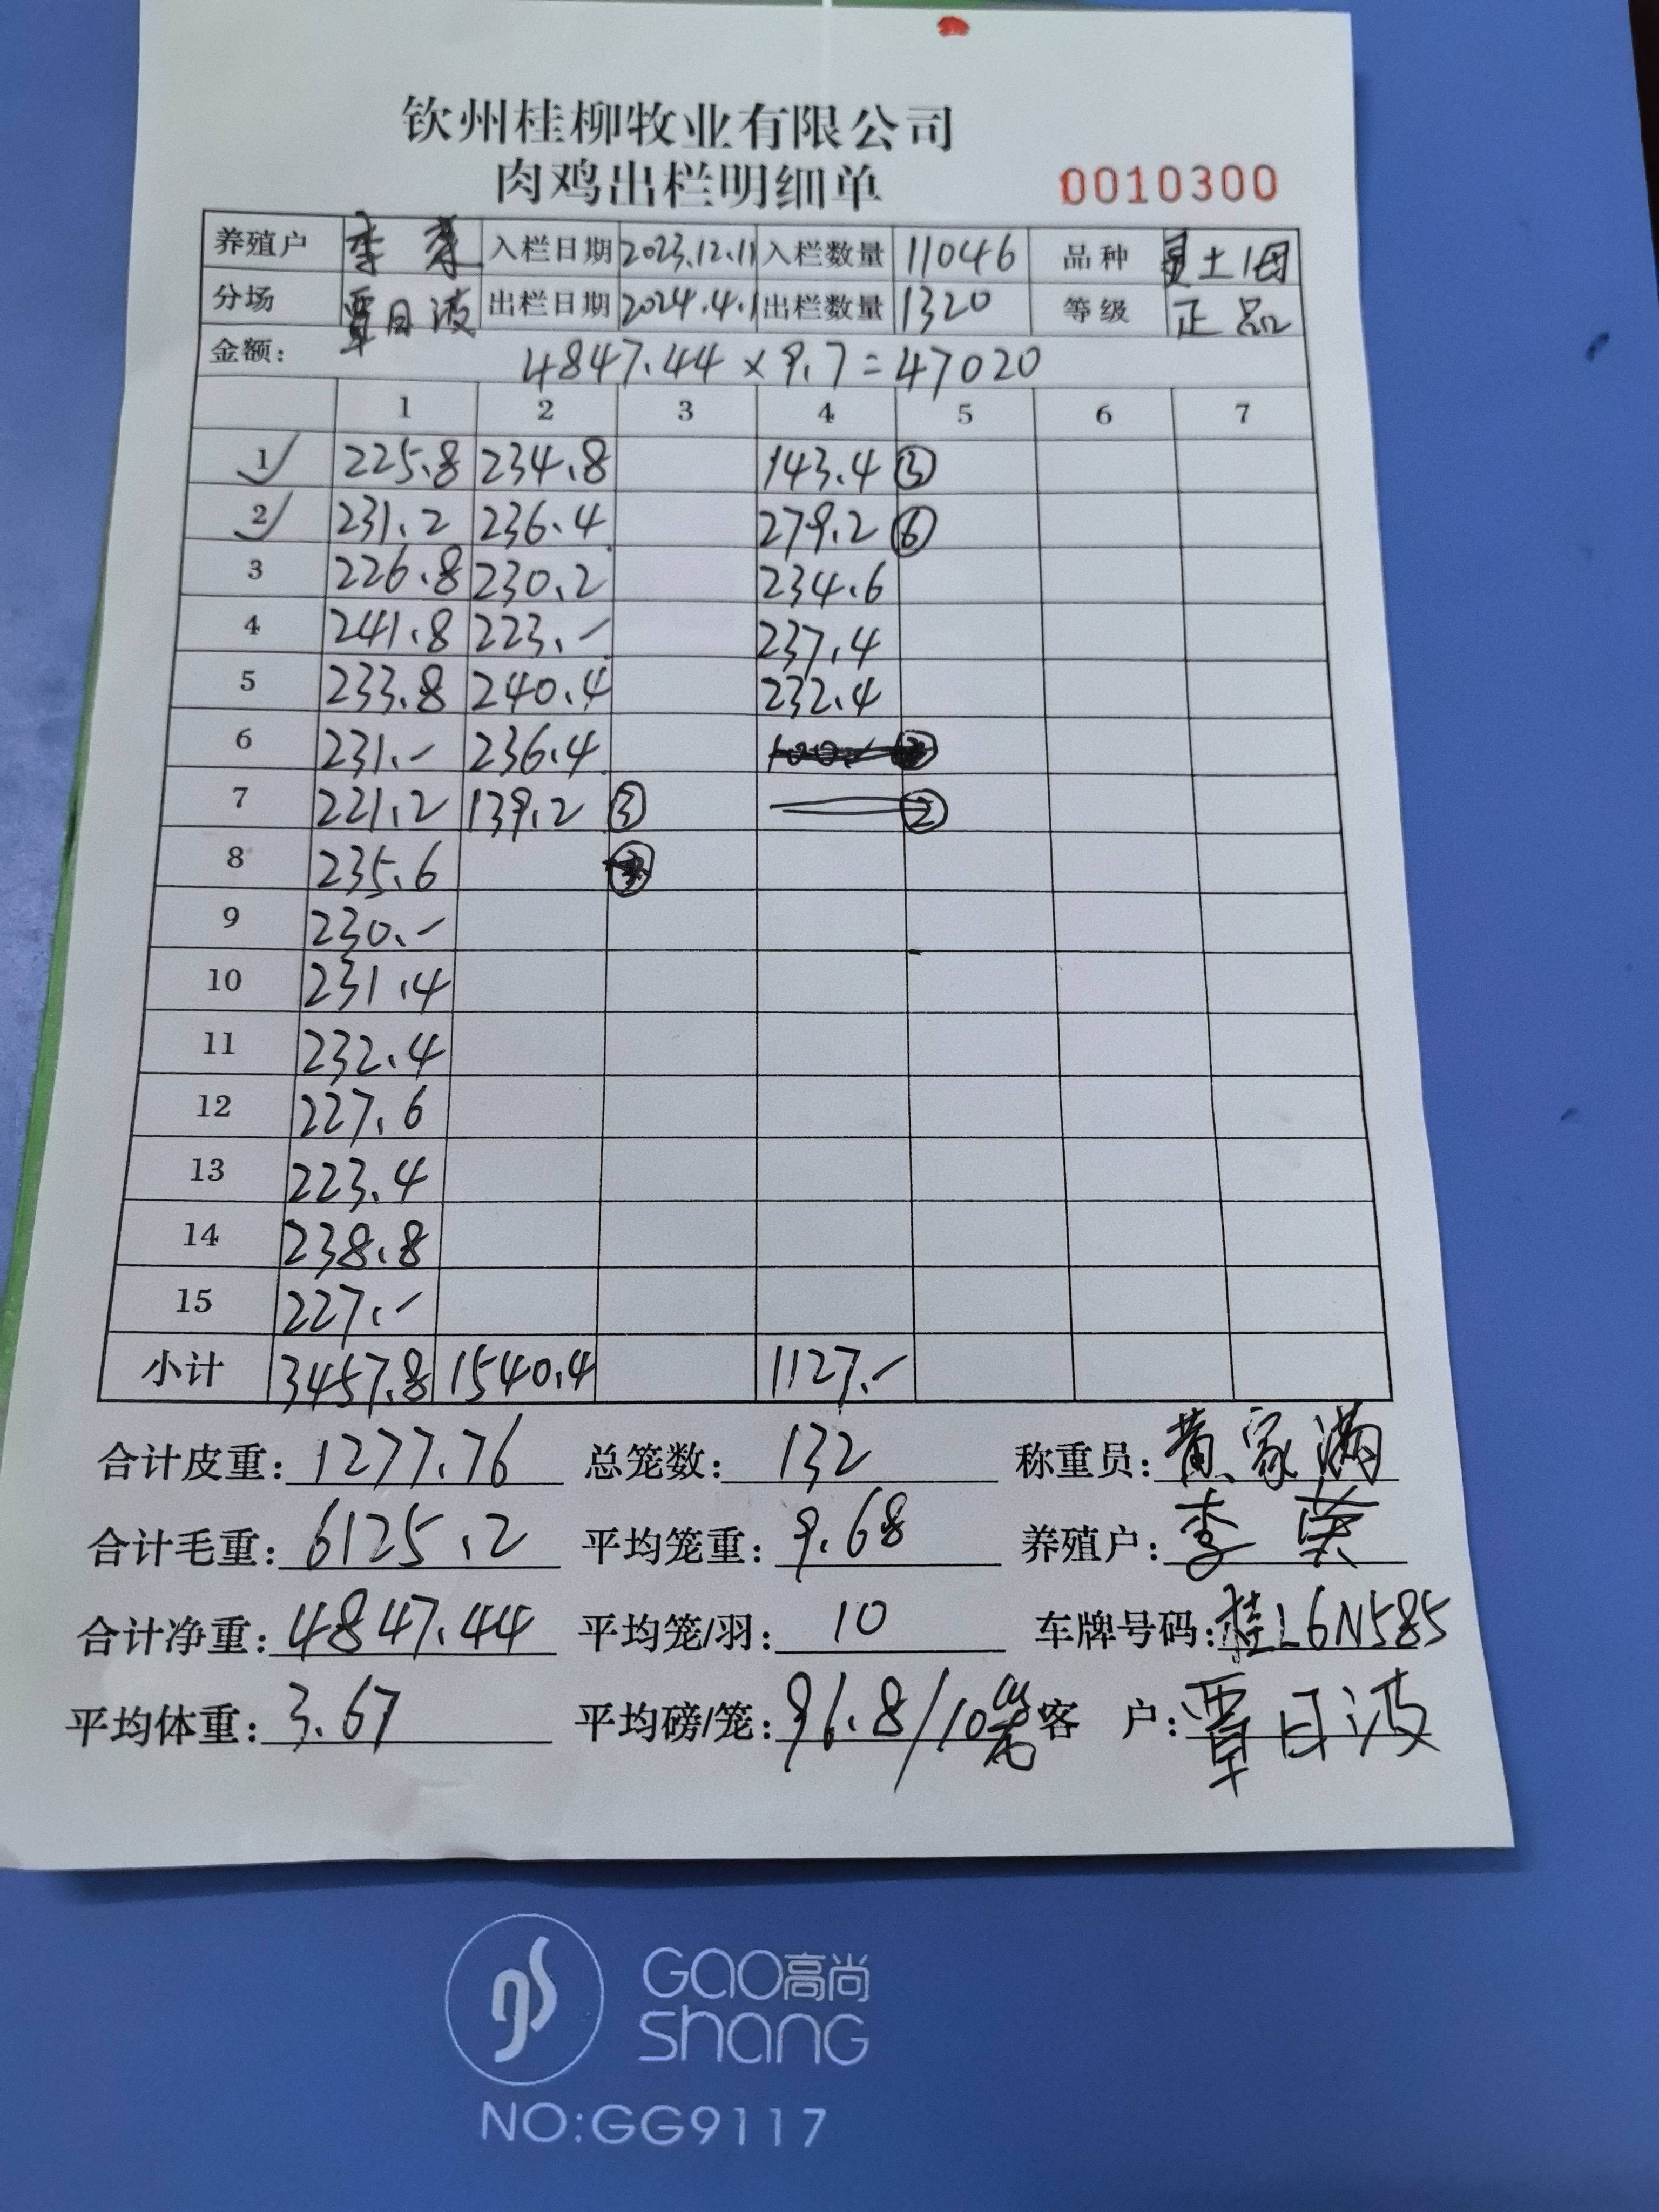 钦州桂柳牧业有限公司
肉鸡出栏明细单 0010300
养殖户 李 入栏日期 2023.12.11 入栏数量 11046 品种 土1母
分场 覃日波 出栏日期 2024.4.1 出栏数量 1320 等级 正品
金额： 4847.44 × 9.7 = 47020
1 2 3 4 5 6 7
1 225.8 234.8 143.4 ③
2 231.2 236.4 279.2 ⑥
3 226.8 230.2 234.6
4 241.8 223.- 237.4
5 233.8 240.4 232.4
6 231.- 236.4
7 221.2 139.2 ③ ②
8 235.6
9 230.-
10 231.4
11 232.4
12 227.6
13 223.4
14 238.8
15 227.-
小计 3457.8 1540.4 1127.-
合计皮重： 1277.76 总笼数： 132 称重员： 黄家满
合计毛重： 6125.2 平均笼重： 9.68 养殖户： 李
合计净重： 4847.44 平均笼/羽： 10 车牌号码： 桂L6N585
平均体重： 3.67 平均磅/笼： 96.8/10 客 户： 覃日波
GAO高尚
shang
NO:GG9117